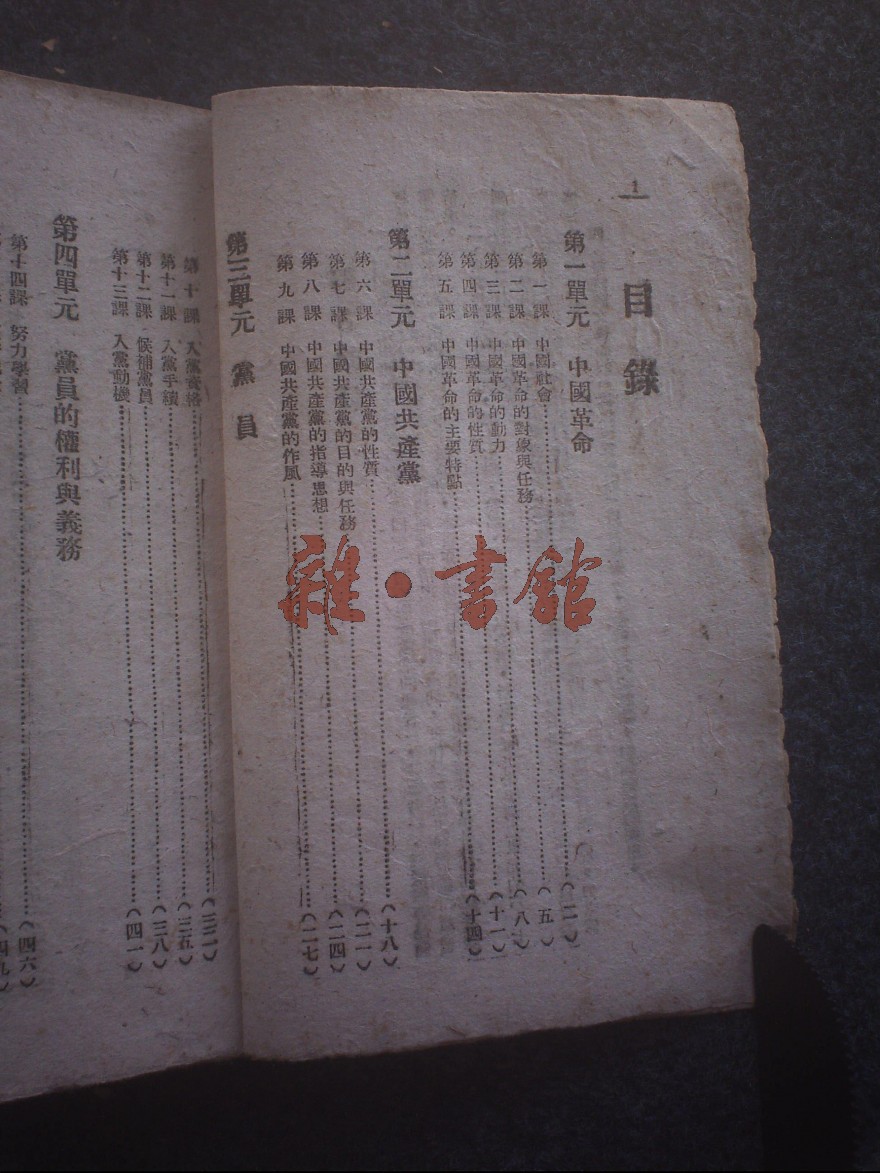 1
目錄
第一單元 中國革命
第一課 中國社會……（二）
第二課 中國革命的對象與任務……（五）
第三課 中國革命的動力……（八）
第四課 中國革命的性質……（十一）
第五課 中國革命的主要特點……（十四）
第二單元 中國共產黨
第六課 中國共產黨的性質……（十八）
第七課 中國共產黨的目的與任務……（二一）
第八課 中國共產黨的指導思想……（二四）
第九課 中國共產黨的作風……（二七）
第三單元 黨員
第十課 入黨資格……（三二）
第十一課 入黨手續……（三五）
第十二課 候補黨員……（三八）
第十三課 入黨動機……（四一）
第四單元 黨員的權利與義務
第十四課 努力學習……（四六）
（四九）
雜·書館